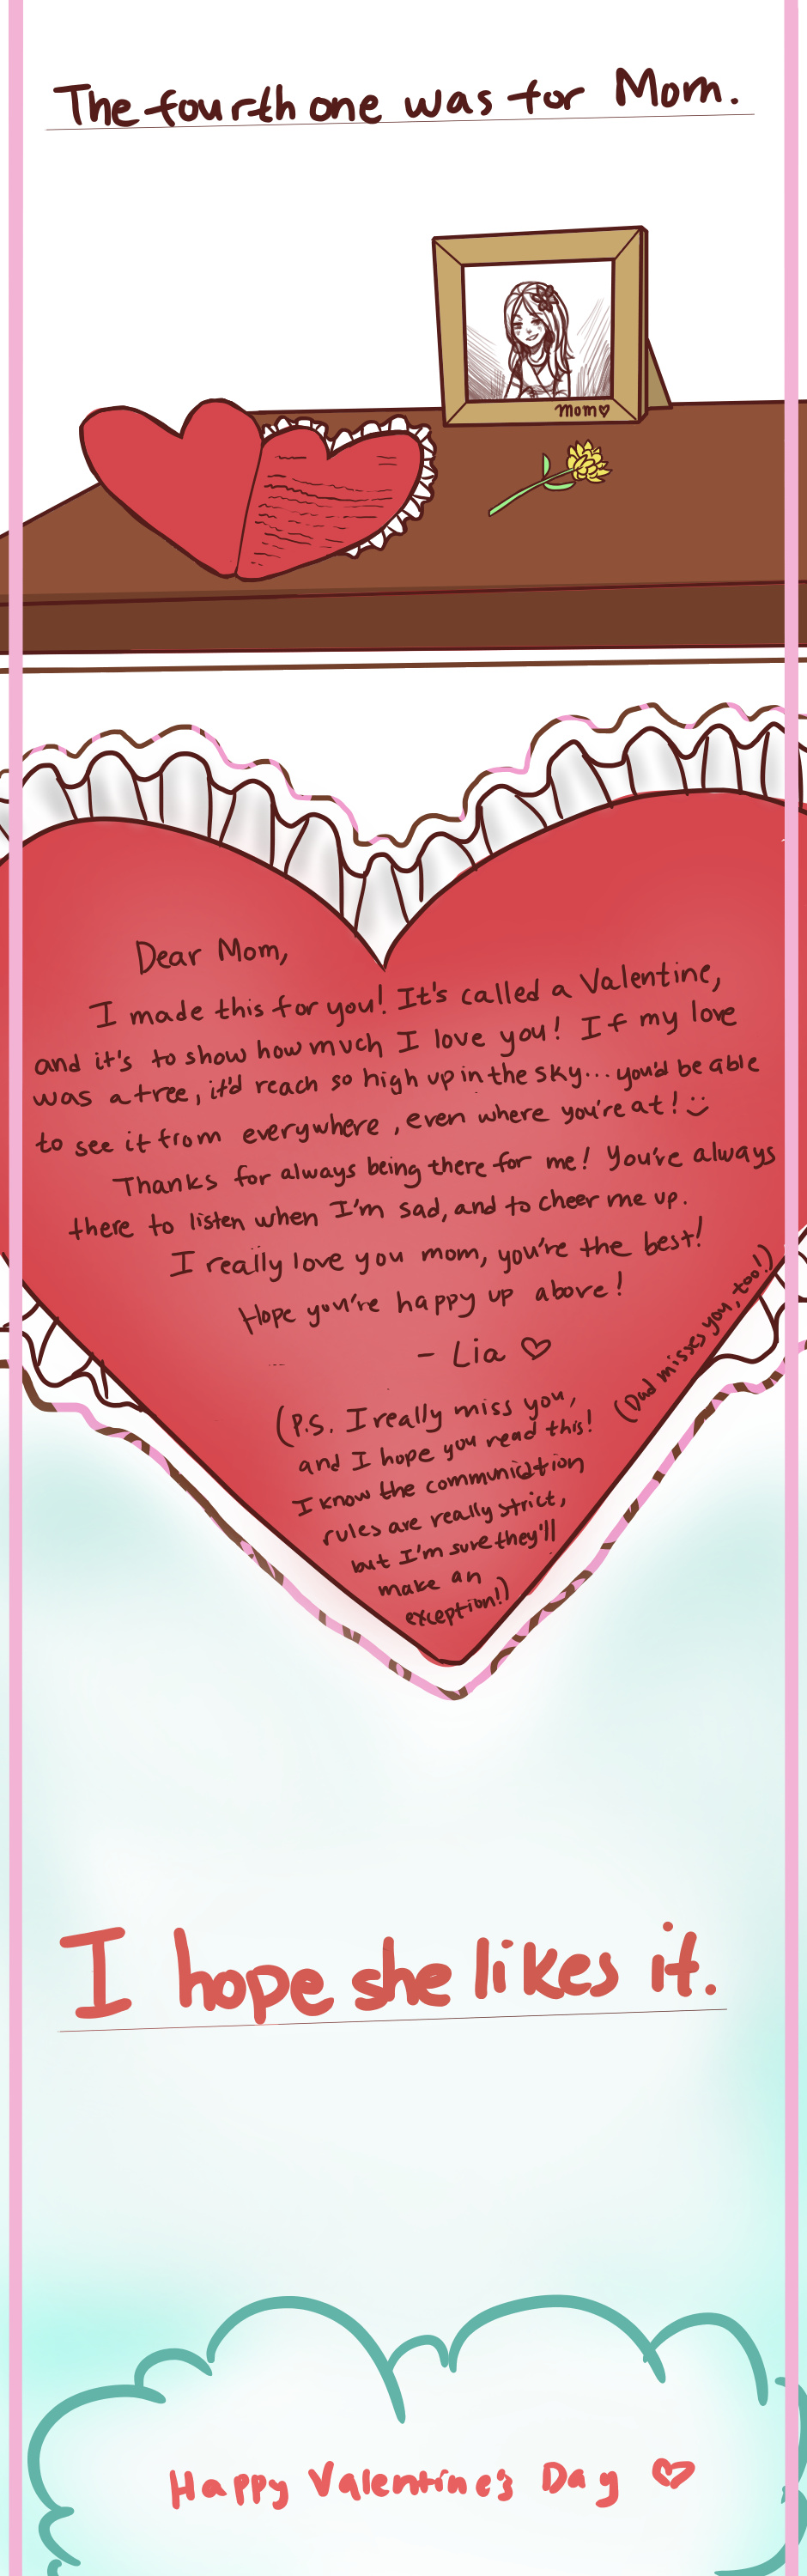 The fourth one was for Mom.
mom♡
Dear Mom,
I made this for you! It's called a Valentine,
and it's to show how much I love you! If my love
was a tree, it'd reach so high up in the sky... you'd be able
to see it from everywhere, even where you're at! :)
Thanks for always being there for me! You've always
there to listen when I'm sad, and to cheer me up.
I really love you mom, you're the best!
Hope you're happy up above!
- Lia ♡
(Dad misses you, too!)
(P.S. I really miss you,
and I hope you read this!
I know the communication
rules are really strict,
but I'm sure they'll
make an
exception!)
I hope she likes it.
Happy Valentine's Day ♡